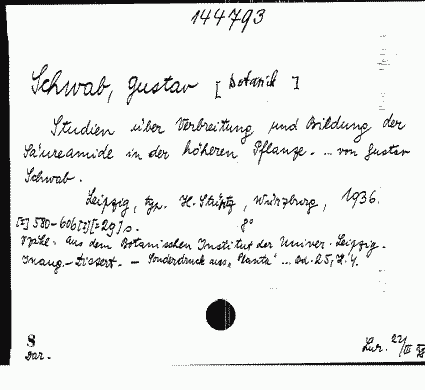 144793
Schwab, Gustav [Botanik]
Studien über Verbreitung und Bildung der
Säureamide in der höheren Pflanze. ... von Gustav
Schwab.
Leipzig, typ. H. Stürtz, Würzburg, 1936.
[2] 580-606 [1] [=29] s. 8°
aus dem Botanischen Institut der Univer. Leipzig.
Inaug.-Dissert. - Sonderdruck aus „Planta" ... Bd. 25, H. 4.
S
Dar.